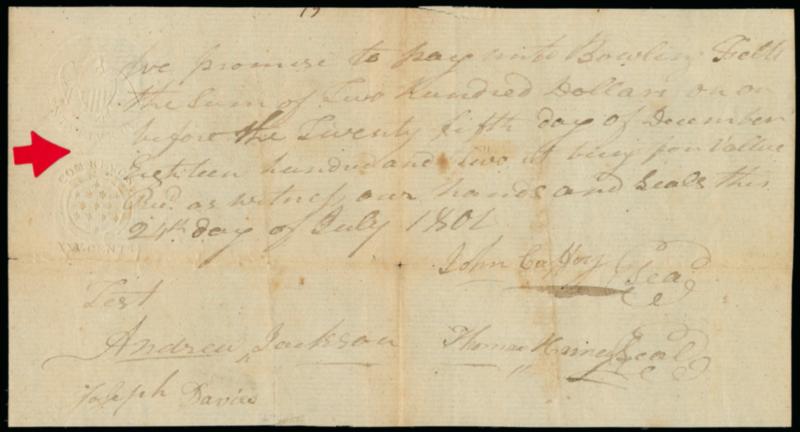 we promise to pay unto Bowlin Felts
the Sum of Two Hundred Dollars on or
before the Twenty fifth day of December
Eighteen hundred and two it being for Vallue
Recd as witness our hands and Seals this
24th day of July 1801
John Caffery Seal
Test
Andrew Jackson Thomas Harney Seal
Joseph Davies